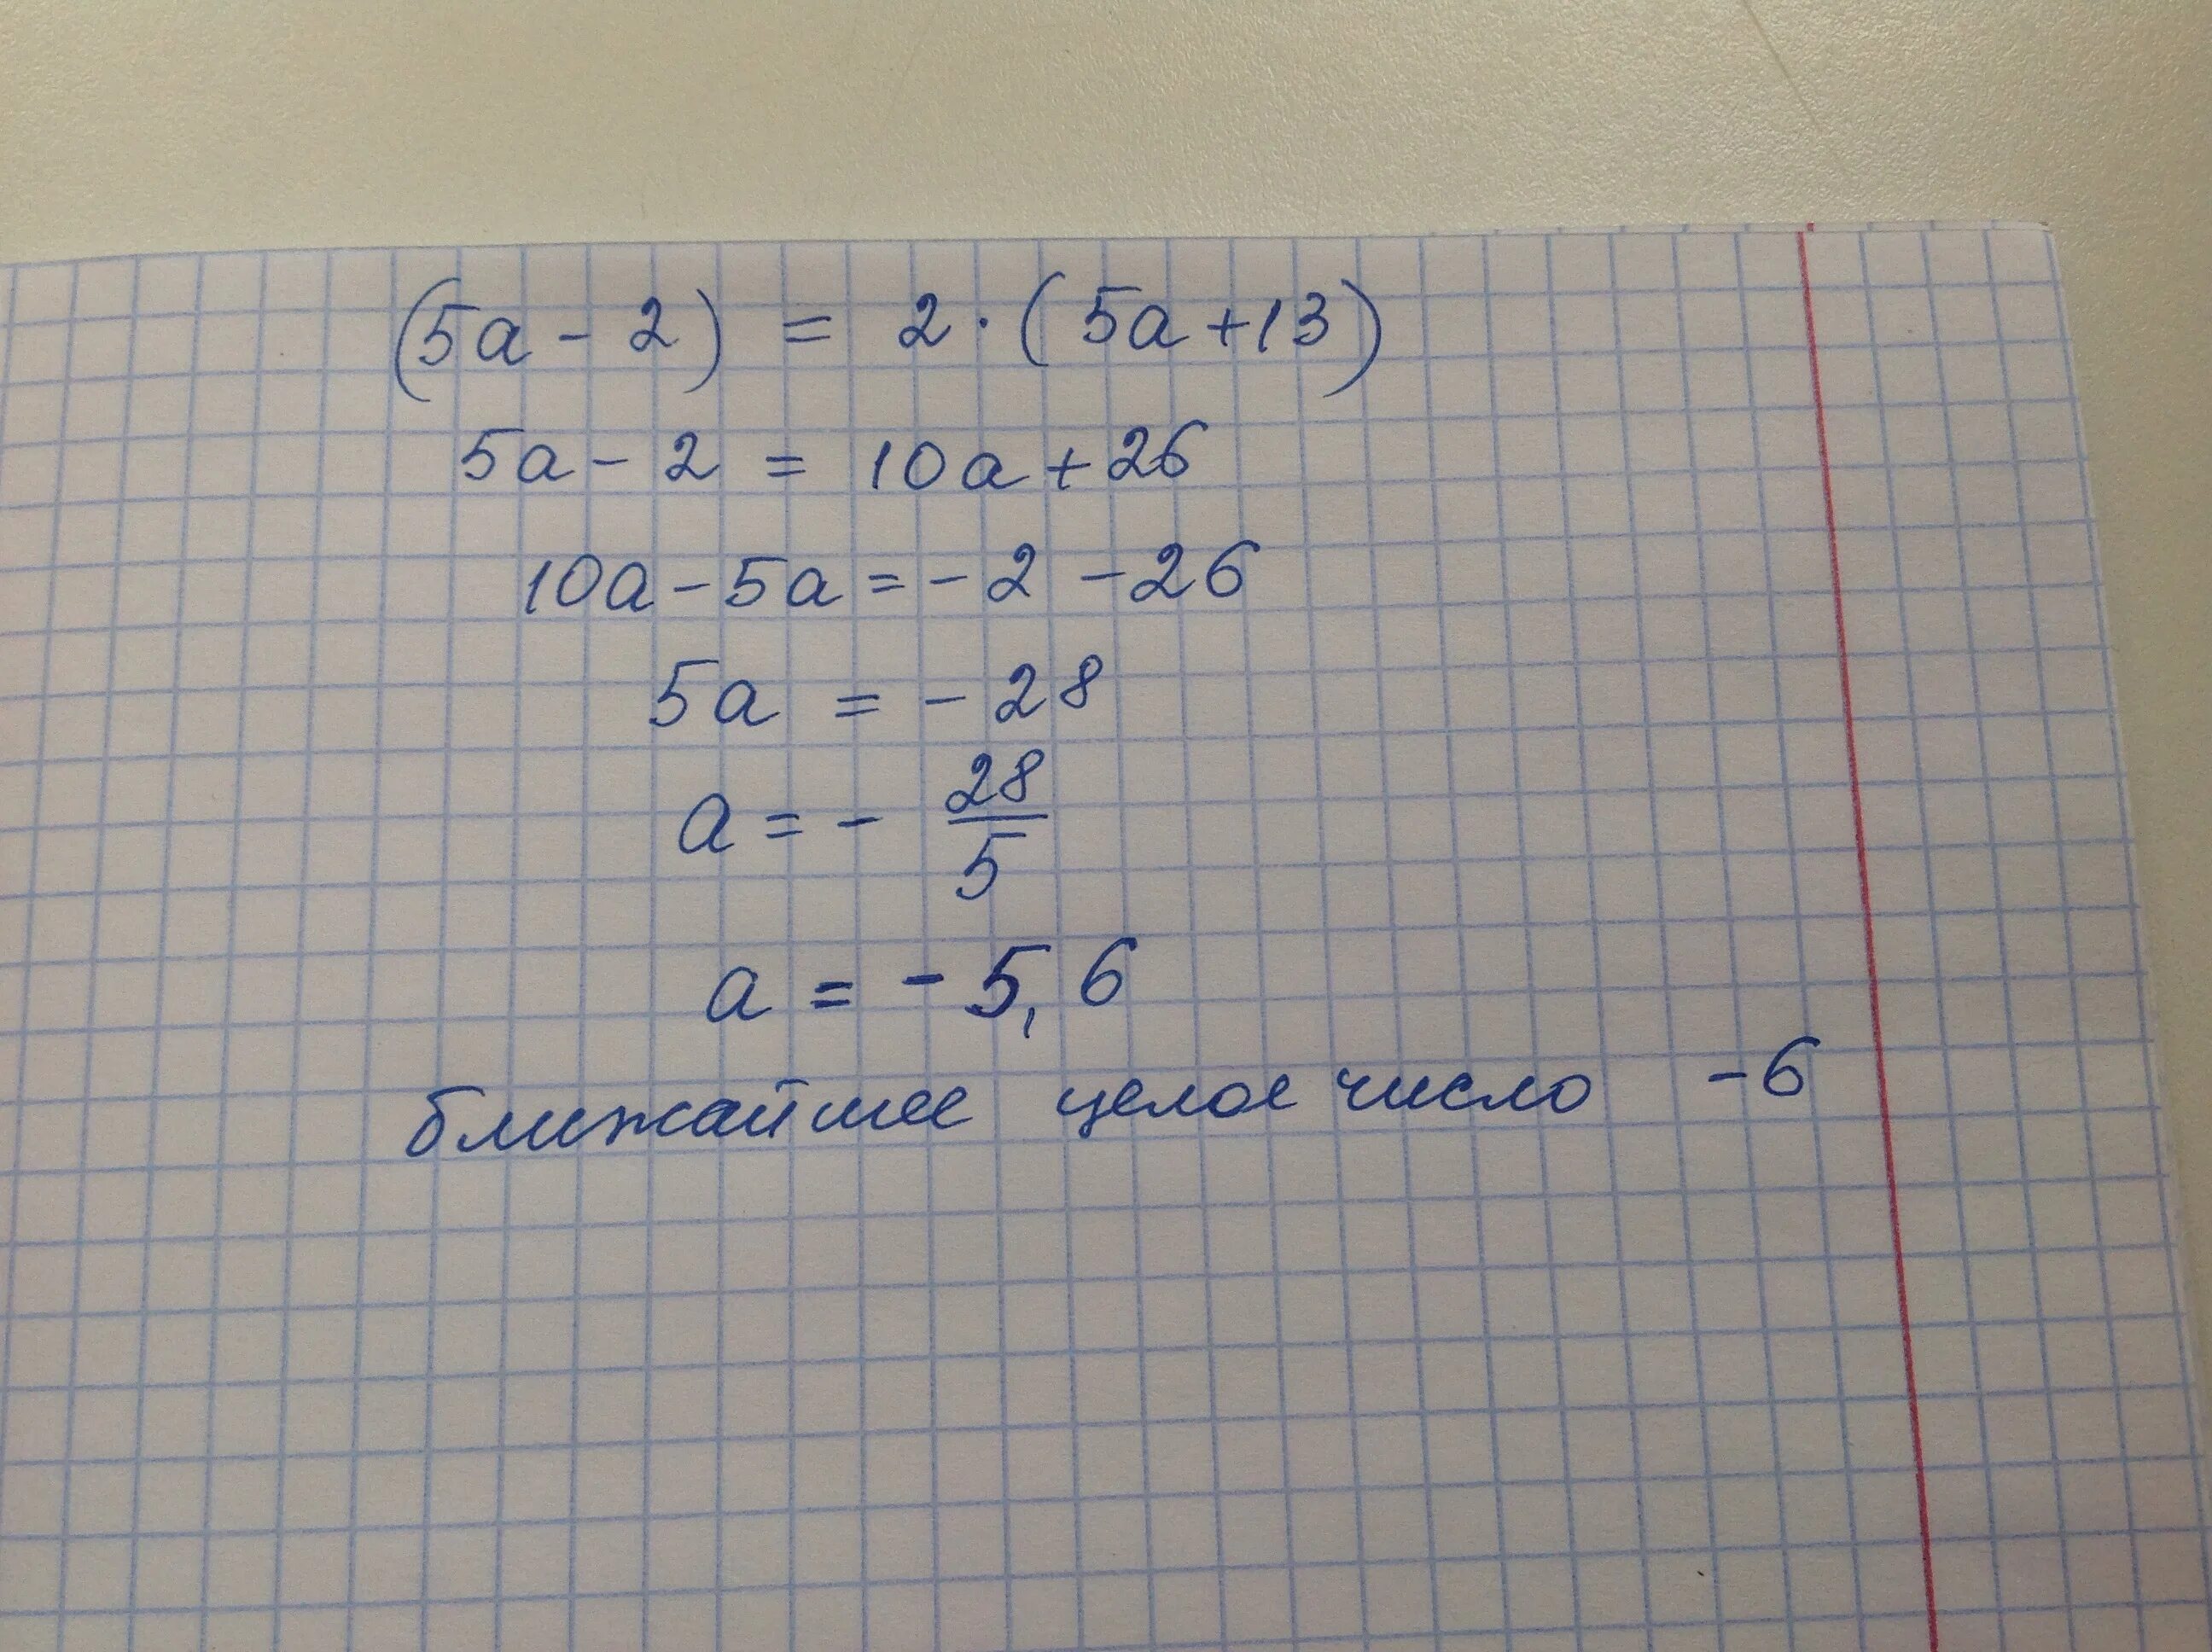 (5а - 2) = 2 · (5а + 13)
5а - 2 = 10а + 26
10а - 5а = - 2 - 26
5а = - 28
а = - 28/5
а = - 5,6
ближайшее целое число -6